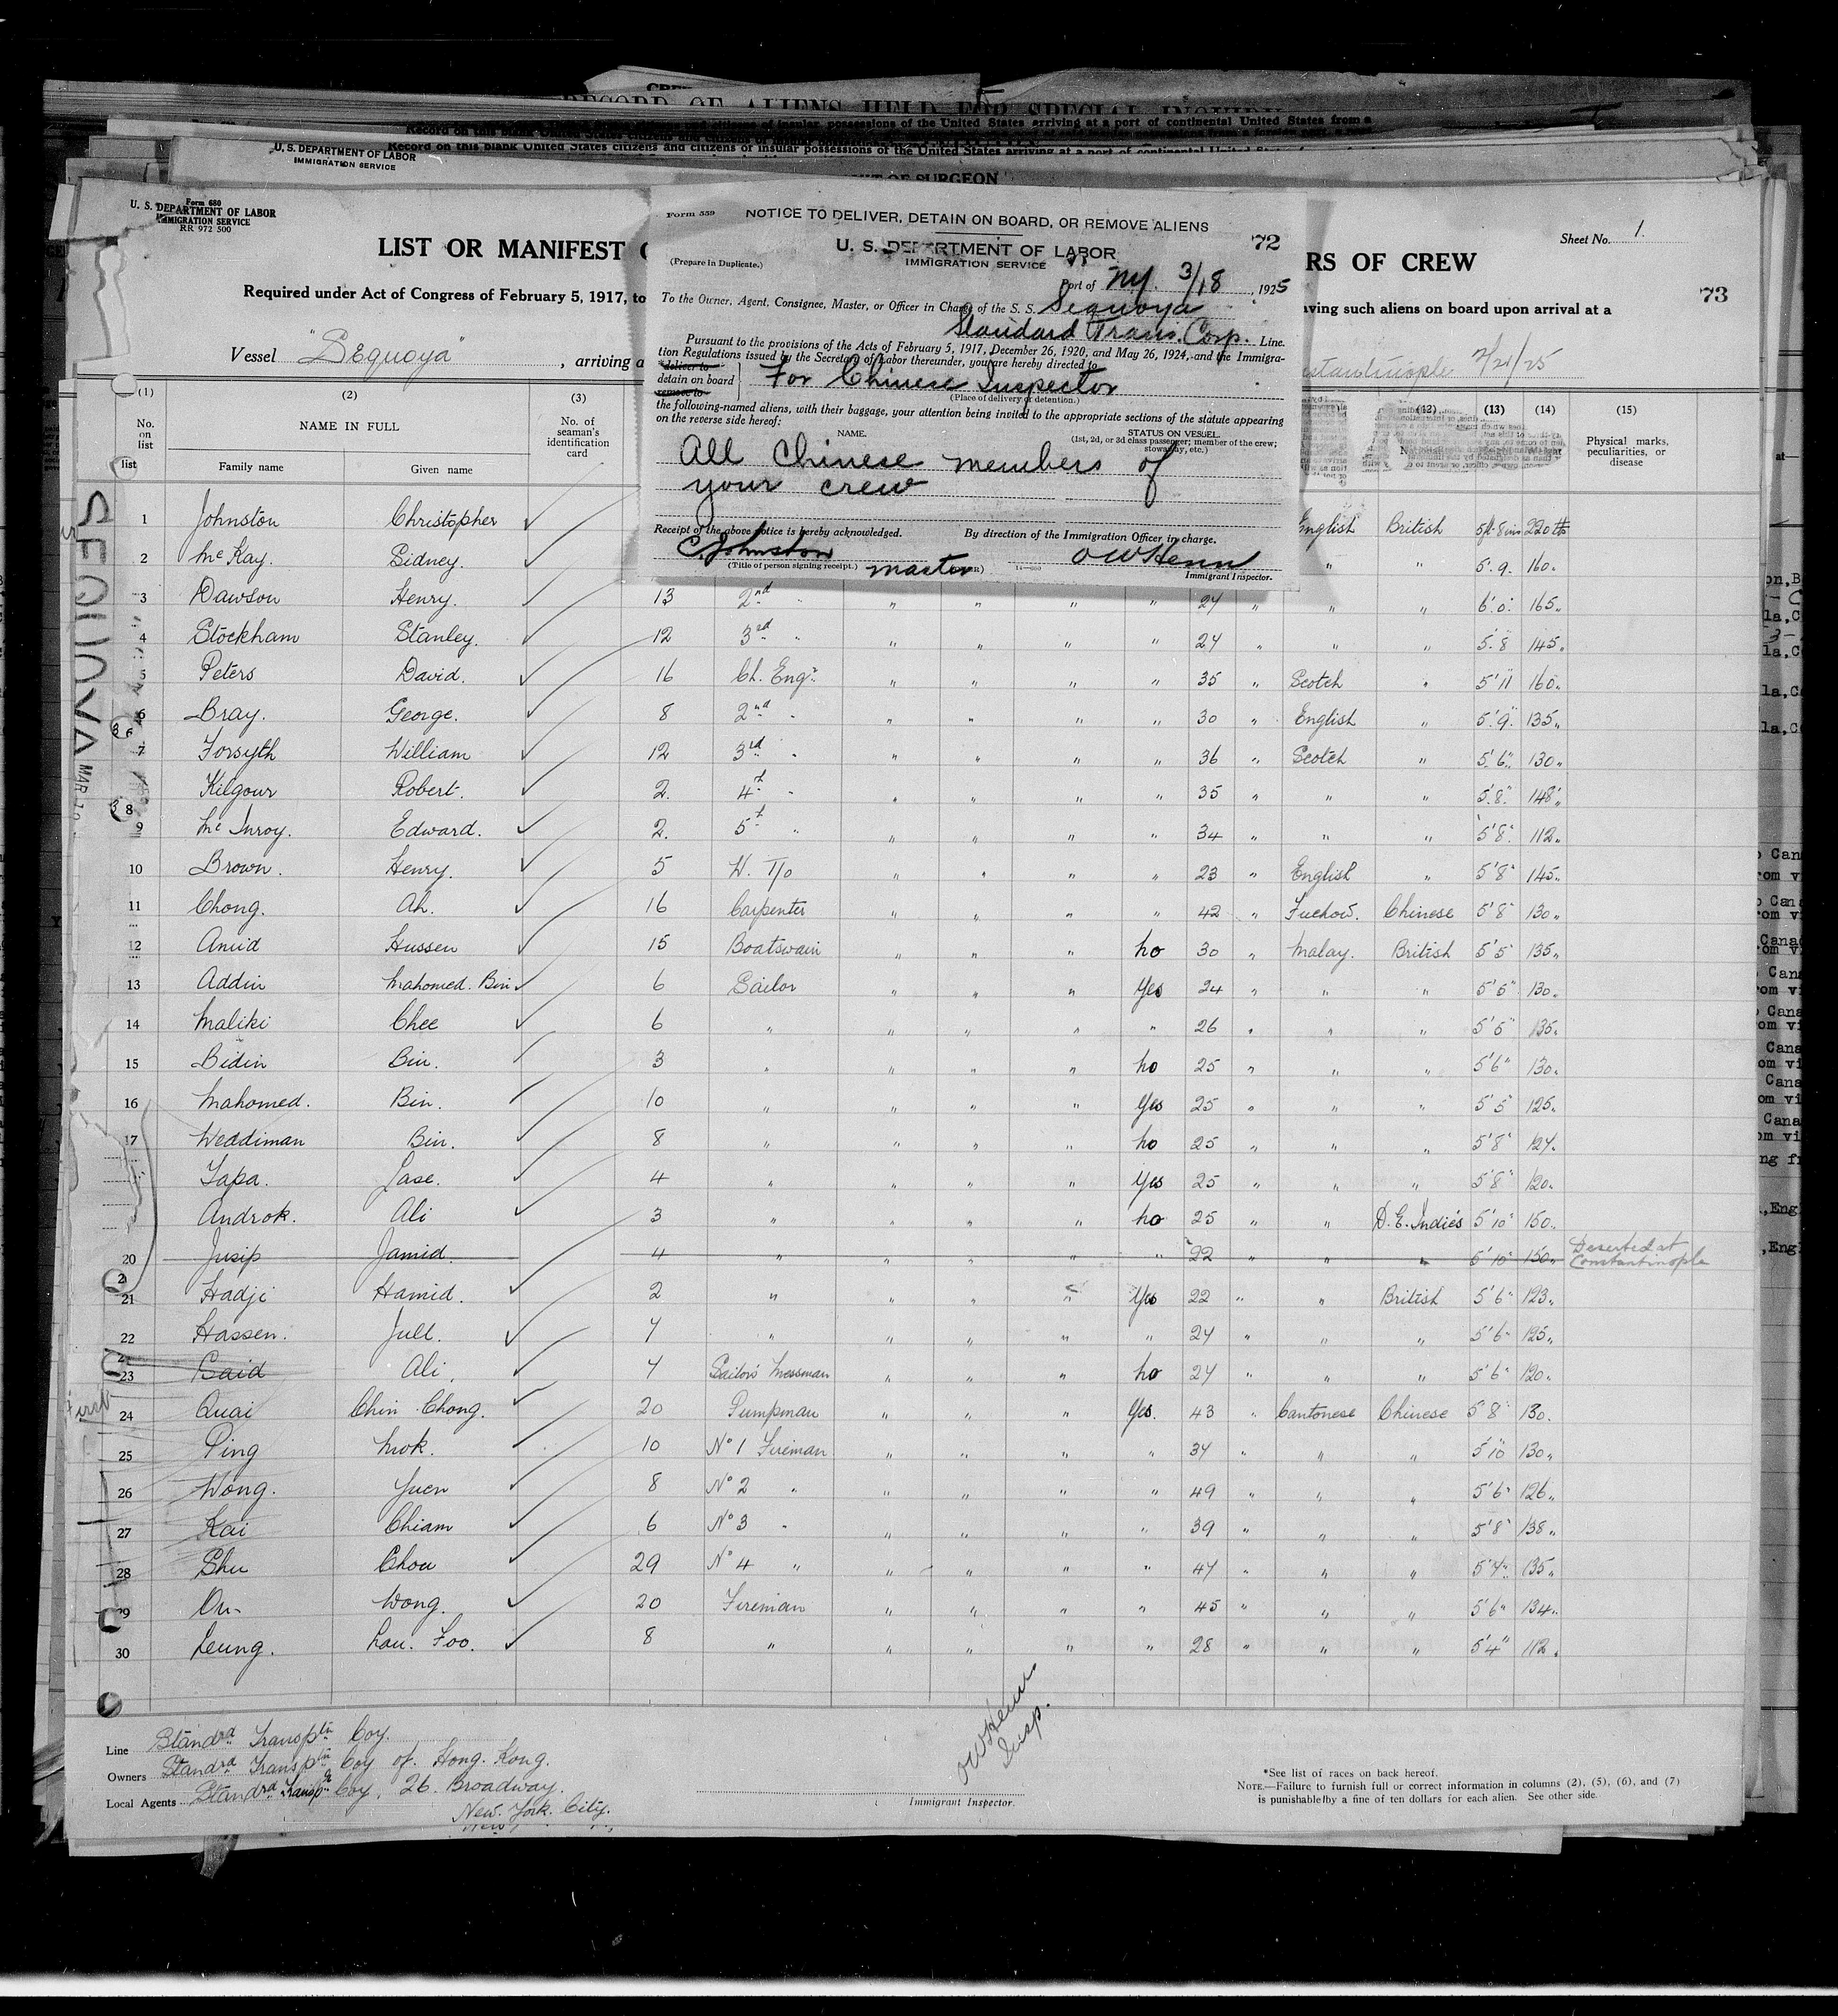 U. S. DEPARTMENT OF LABOR
IMMIGRATION SERVICE
Form 680
U. S. DEPARTMENT OF LABOR
IMMIGRATION SERVICE
RR 972 500
LIST OR MANIFEST
RS OF CREW
Sheet No. 1.
Required under Act of Congress of February 5, 1917, to
aving such aliens on board upon arrival at a
73
Vessel "Sequoya", arriving a
Form 559
NOTICE TO DELIVER, DETAIN ON BOARD, OR REMOVE ALIENS
U. S. DEPARTMENT OF LABOR
72
(Prepare in Duplicate.)
IMMIGRATION SERVICE
Port of N.Y. 3/18, 1925
To the Owner, Agent, Consignee, Master, or Officer in Charge of the S. S. Sequoya
Standard Trans. Corp. Line.
Pursuant to the provisions of the Acts of February 5, 1917, December 26, 1920, and May 26, 1924, and the Immigra-
tion Regulations issued by the Secretary of Labor thereunder, you are hereby directed to
deliver to
detain on board
remove to
For Chinese Inspector
(Place of delivery or detention.)
the following-named aliens, with their baggage, your attention being invited to the appropriate sections of the statute appearing
on the reverse side hereof:
NAME.
STATUS ON VESSEL.
(1st, 2d, or 3d class passenger; member of the crew;
stowaway, etc.)
All Chinese members of
your crew
Receipt of the above notice is hereby acknowledged.
By direction of the Immigration Officer in charge.
C Johnston
O W Henn
(Title of person signing receipt.) master
Immigrant Inspector.
(1) (2) (3) (12) (13) (14) (15)
No. on list
NAME IN FULL
Family name Given name
No. of seaman's identification card
Physical marks, peculiarities, or disease
1 Johnston Christopher English British 5ft 8in 220
2 McKay. Sidney. " " 5'.9. 160.
3 Dawson Henry. 13 2nd " " " " " 24 " " " 6'.0" 165 "
4 Stockham Stanley. 12 3rd " " " " " 24 " " " 5'.8 145 "
5 Peters David. 16 Ch. Engr. " " " " 35 " Scotch " 5'11 160 "
6 Bray. George. 8 2nd " " " " " 30 " English " 5'.9" 135 "
7 Forsyth William 12 3rd " " " " " 36 " Scotch " 5'.6" 130 "
Kilgour Robert. 2. 4t " " " " " 35 " " " 5'.8" 148 "
9 McInroy. Edward. 2. 5t " " " " " 34 " " " 5'8" 112 "
10 Brown. Henry. 5 W. T/o " " " " 23 " English " 5'8" 145 "
11 Chong. Ah. 16 Carpenter " " " " 42 " Fuchow. Chinese 5'8" 130 "
12 Amid Hussen 15 Boatswain " " " no 30 " Malay. British 5'5" 135 "
13 Addin Mahomed. Bin 6 Sailor " " " Yes 24 " " " 5'5" 130 "
14 Maliki Chee 6 " " " " " 26 " " " 5'5" 135 "
15 Bidin Bin. 3 " " " " no 25 " " " 5'6" 130 "
16 Mahomed. Bin. 10 " " " " Yes 25 " " " 5'5" 125 "
17 Weddiman Bin. 8 " " " " no 25 " " " 5'8" 124 "
Tapa. Jase. 4 " " " " Yes 25 " " " 5'8" 120 "
Androk. Ali 3 " " " " no 25 " " D.E. Indies 5'10" 150 "
20 Jusip Jamid. 4 " " " " " 22 " " " 5'10" 150 " Deserted at Constantinople
21 Hadji Hamid. 2 " " " " Yes 22 " " British 5'6" 123 "
22 Hassen. Jull. 4 " " " " " 24 " " " 5'6" 125 "
23 Said Ali. 4 Sailors Messman " " " no 24 " " " 5'6" 120 "
24 Quai Chin Chong. 20 Pumpman " " " Yes. 43 " Cantonese Chinese 5'8" 130.
25 Ping Mok. 10 No 1 Fireman " " " " 34 " " " 5'10 130 "
26 Wong. Yuen 8 No 2 " " " " " 49 " " " 5'6" 126 "
27 Kai Chiam 6 No 3 " " " " " 39 " " " 5'8" 138 "
28 Shu Chou 29 No 4 " " " " " 47 " " " 5'4" 135 "
29 On Wong. 20 Fireman " " " " 45 " " " 5'6" 134 "
30 Leung. Lau. Foo. 8 " " " " " 28 " " " 5'4" 112 "
SEQUOYA
First
Line Standrd Transptn Coy.
Owners Standrd Transptn Coy of Hong. Kong.
Local Agents Standrd Transp Coy. 26 Broadway.
New. York. City.
O W Henn
Insp.
Immigrant Inspector.
*See list of races on back hereof.
NOTE.—Failure to furnish full or correct information in columns (2), (5), (6), and (7)
is punishable by a fine of ten dollars for each alien. See other side.